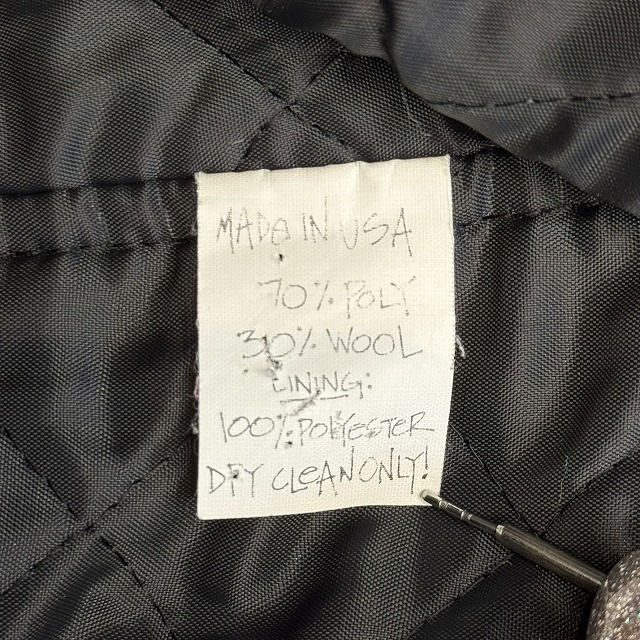 MADE IN USA
70% POLY
30% WOOL
LINING:
100% POLYESTER
DRY CLEAN ONLY!